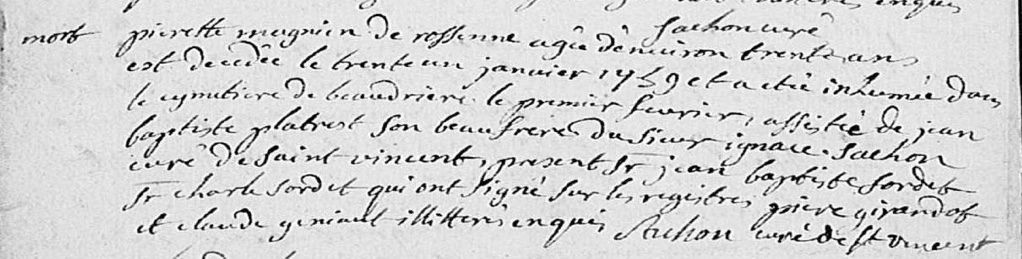 Sachon curé
mort pierette magnien de rossenne agée denviron trente ans
est decedée le trente un janvier 1759 et a etée inhumée dans
le cymitiere de beaudriere le premier fevrier, assistée de jean
baptiste platrest son beaufrere du sieur ignace Sachon
curé de saint vincent, present Sr jean baptiste sordet
Sr charle sordet qui ont signé sur les registres piere girandot
et claude geniaut illitterés enquis Sachon curé de st vincent